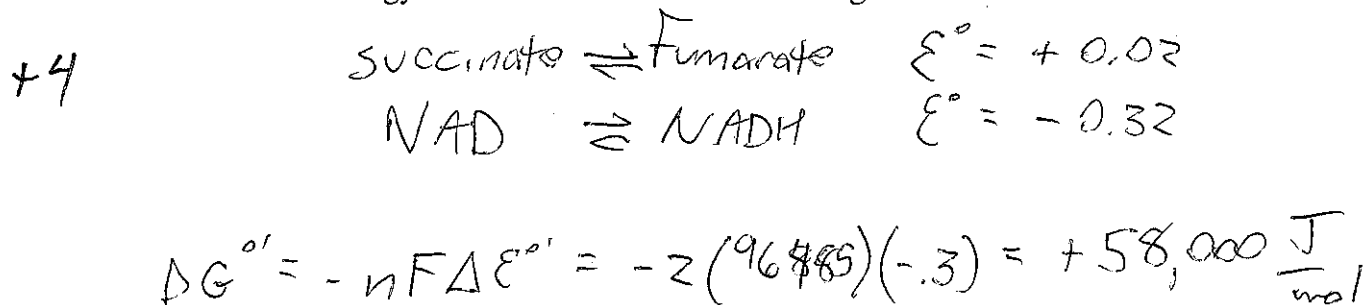 +4
succinate ⇌ Fumarate ℰ° = + 0.02
NAD ⇌ NADH ℰ° = - 0.32
ΔG°' = -nFΔℰ°' = -2(96485)(-.3) = +58,000 J/mol